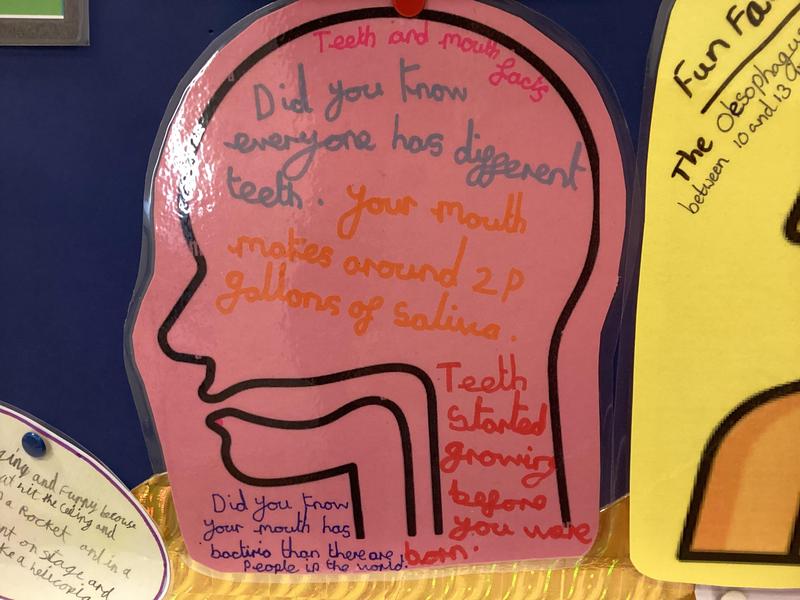 Teeth and mouth
facts
Did you know
everyone has different
teeth. Your mouth
makes around 2P
gallons of saliva.
Teeth
Started
growing
before
you were
born.
Did you know
your mouth has
bactiria than there are
People in the world!
Fun Fa
The Oesophagus
between 10 and 13
zing and Funny because
at hit the ceiling and
a Rocket and in a
nt on stage and
ke a helicopte